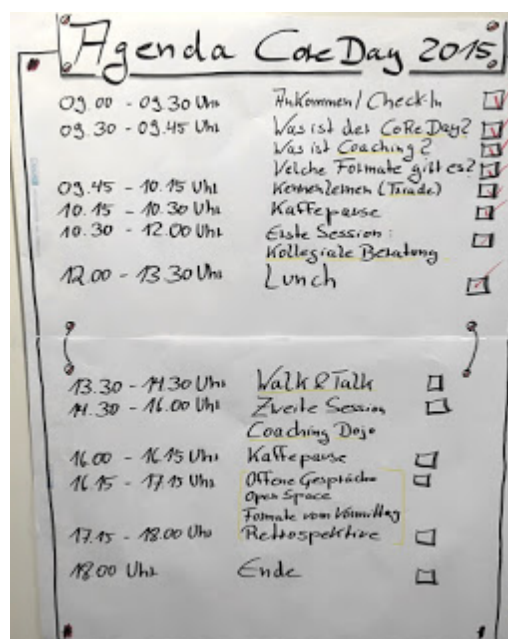 Agenda CoReDay 2015
09.00 - 09.30 Uhr Ankommen / Check-In
09.30 - 09.45 Uhr Was ist der CoReDay?
Was ist Coaching?
Welche Formate gibt es?
09.45 - 10.15 Uhr Kennenlernen (Triade)
10.15 - 10.30 Uhr Kaffepause
10.30 - 12.00 Uhr Erste Session:
Kollegiale Beratung
12.00 - 13.30 Uhr Lunch
13.30 - 14.30 Uhr Walk & Talk
14.30 - 16.00 Uhr Zweite Session
Coaching Dojo
16.00 - 16.15 Uhr Kaffepause
16.15 - 17.15 Uhr Offene Gespräche
Open Space
Formate vom Vormittag
17.15 - 18.00 Uhr Retrospektive
18.00 Uhr Ende